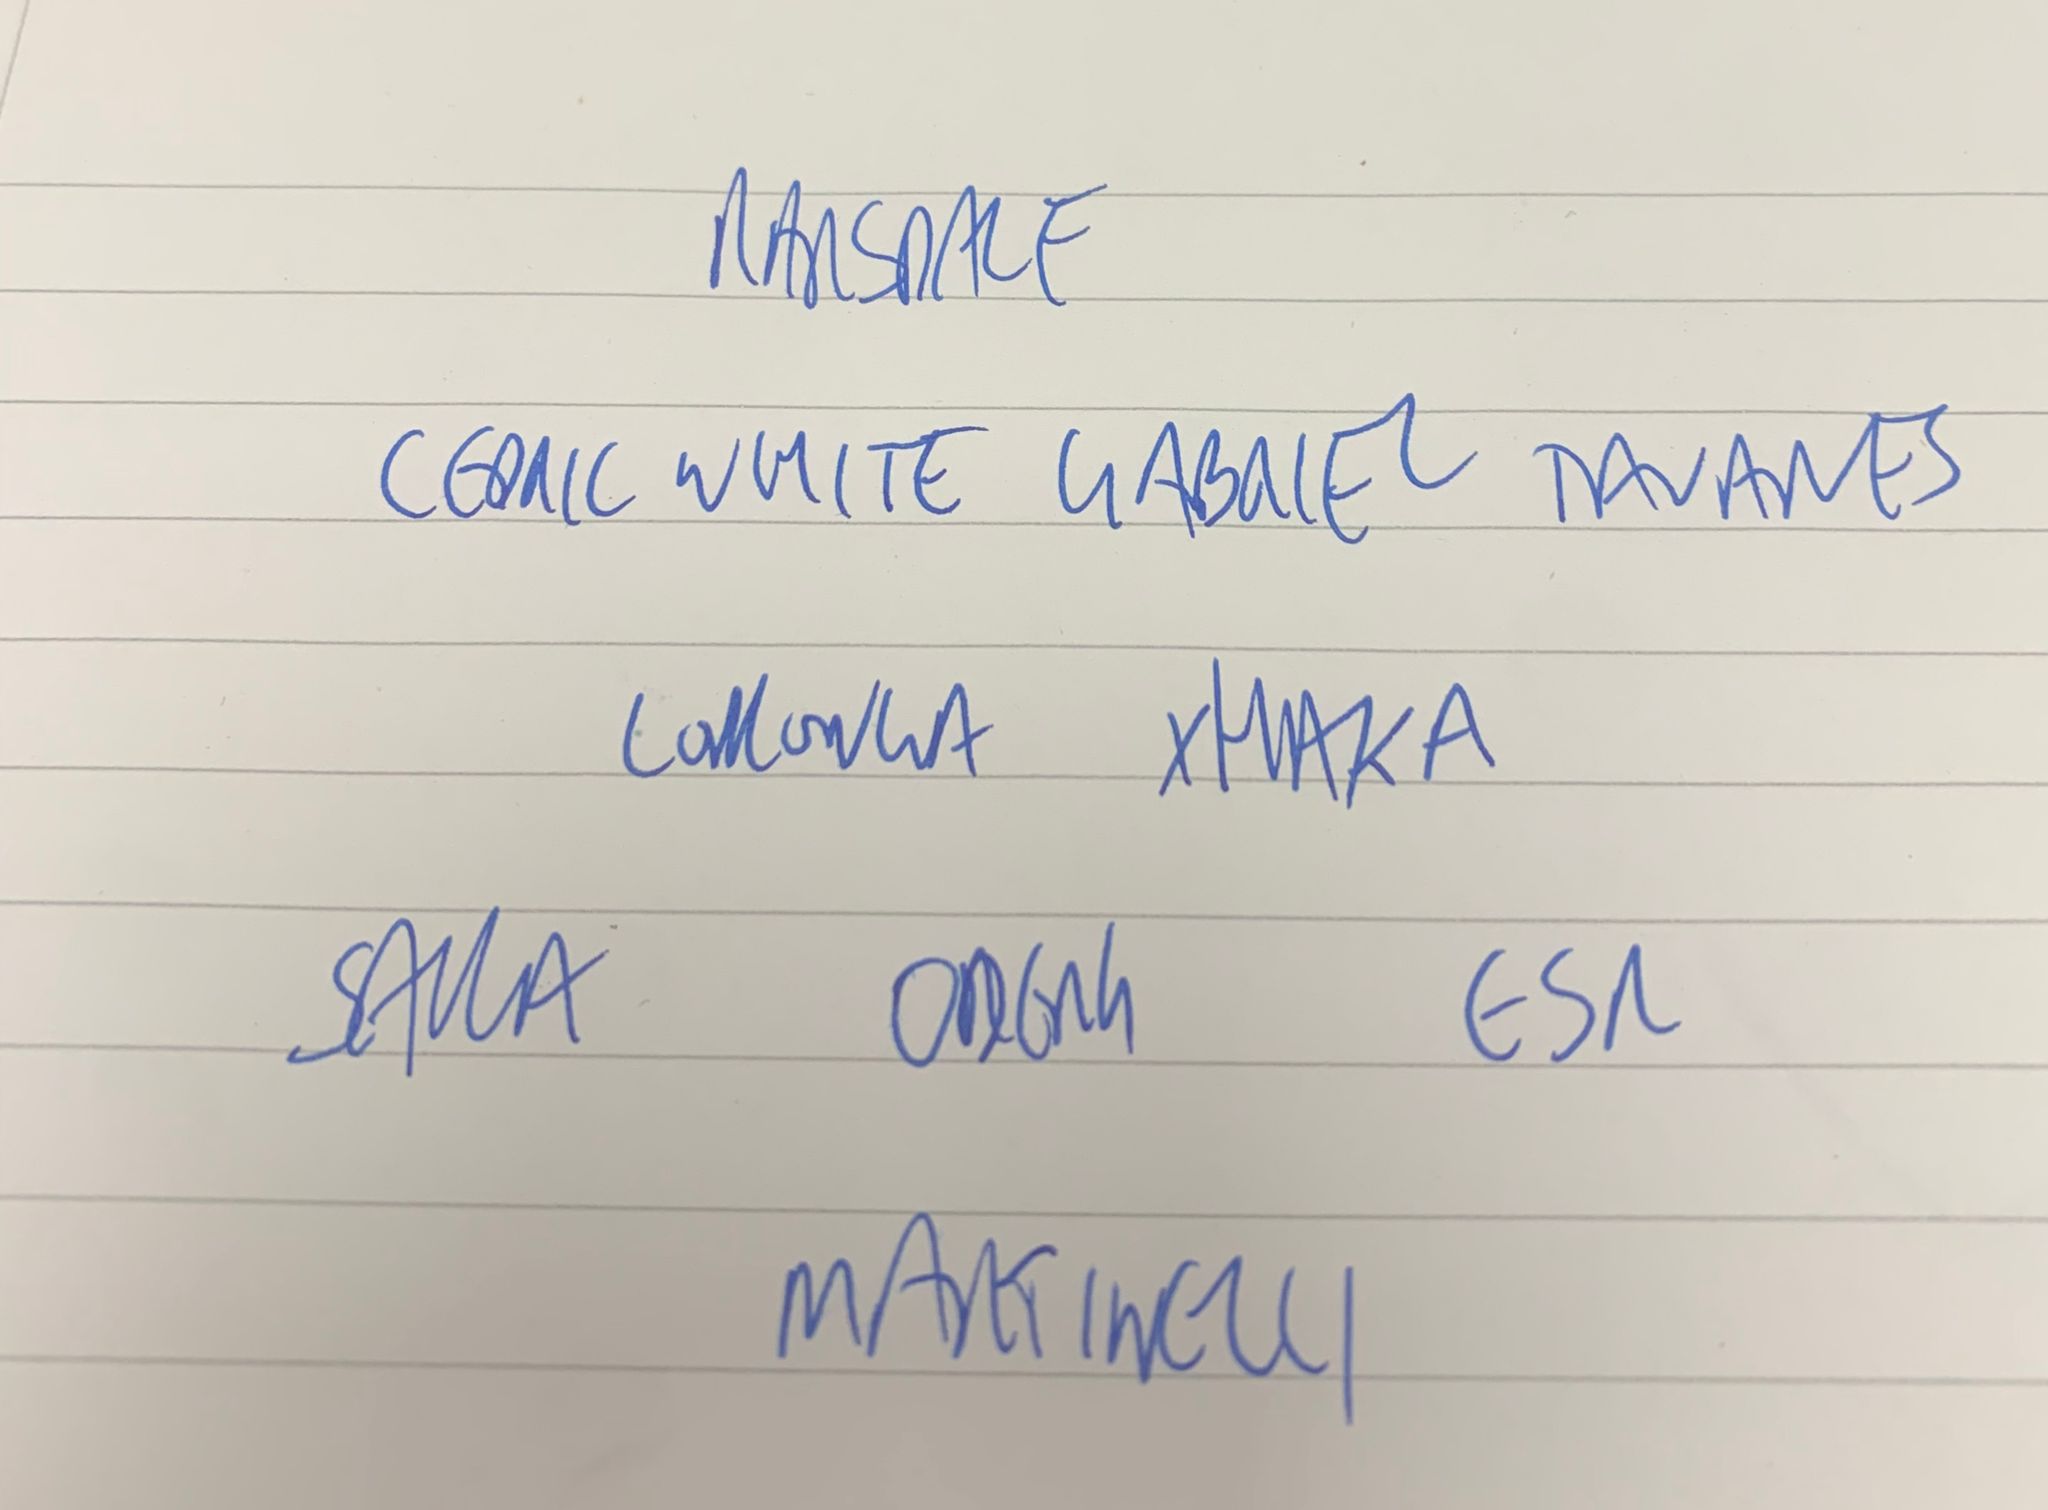 RAMSDALE
CEDRIC WHITE GABRIEL TAVARES
LOKONGA XHAKA
SAKA ODEGAARD ESR
MARTINELLI